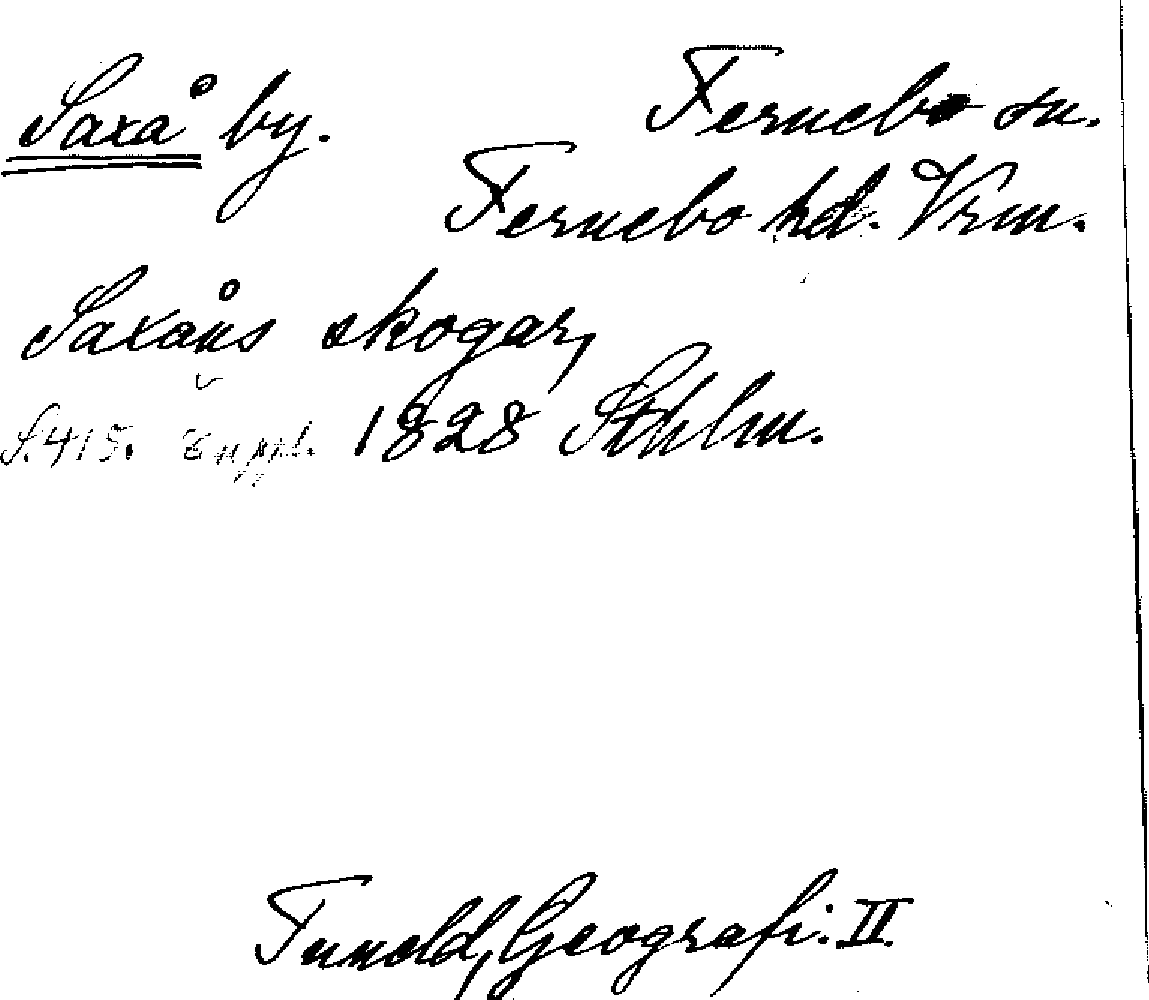 Saxå by. Fernebo sn.
Fernebo hd. Vrm.
Saxåns skogar,
S. 415. Suppl. 1828 Sthlm.
Tuneld, Geografi. II.